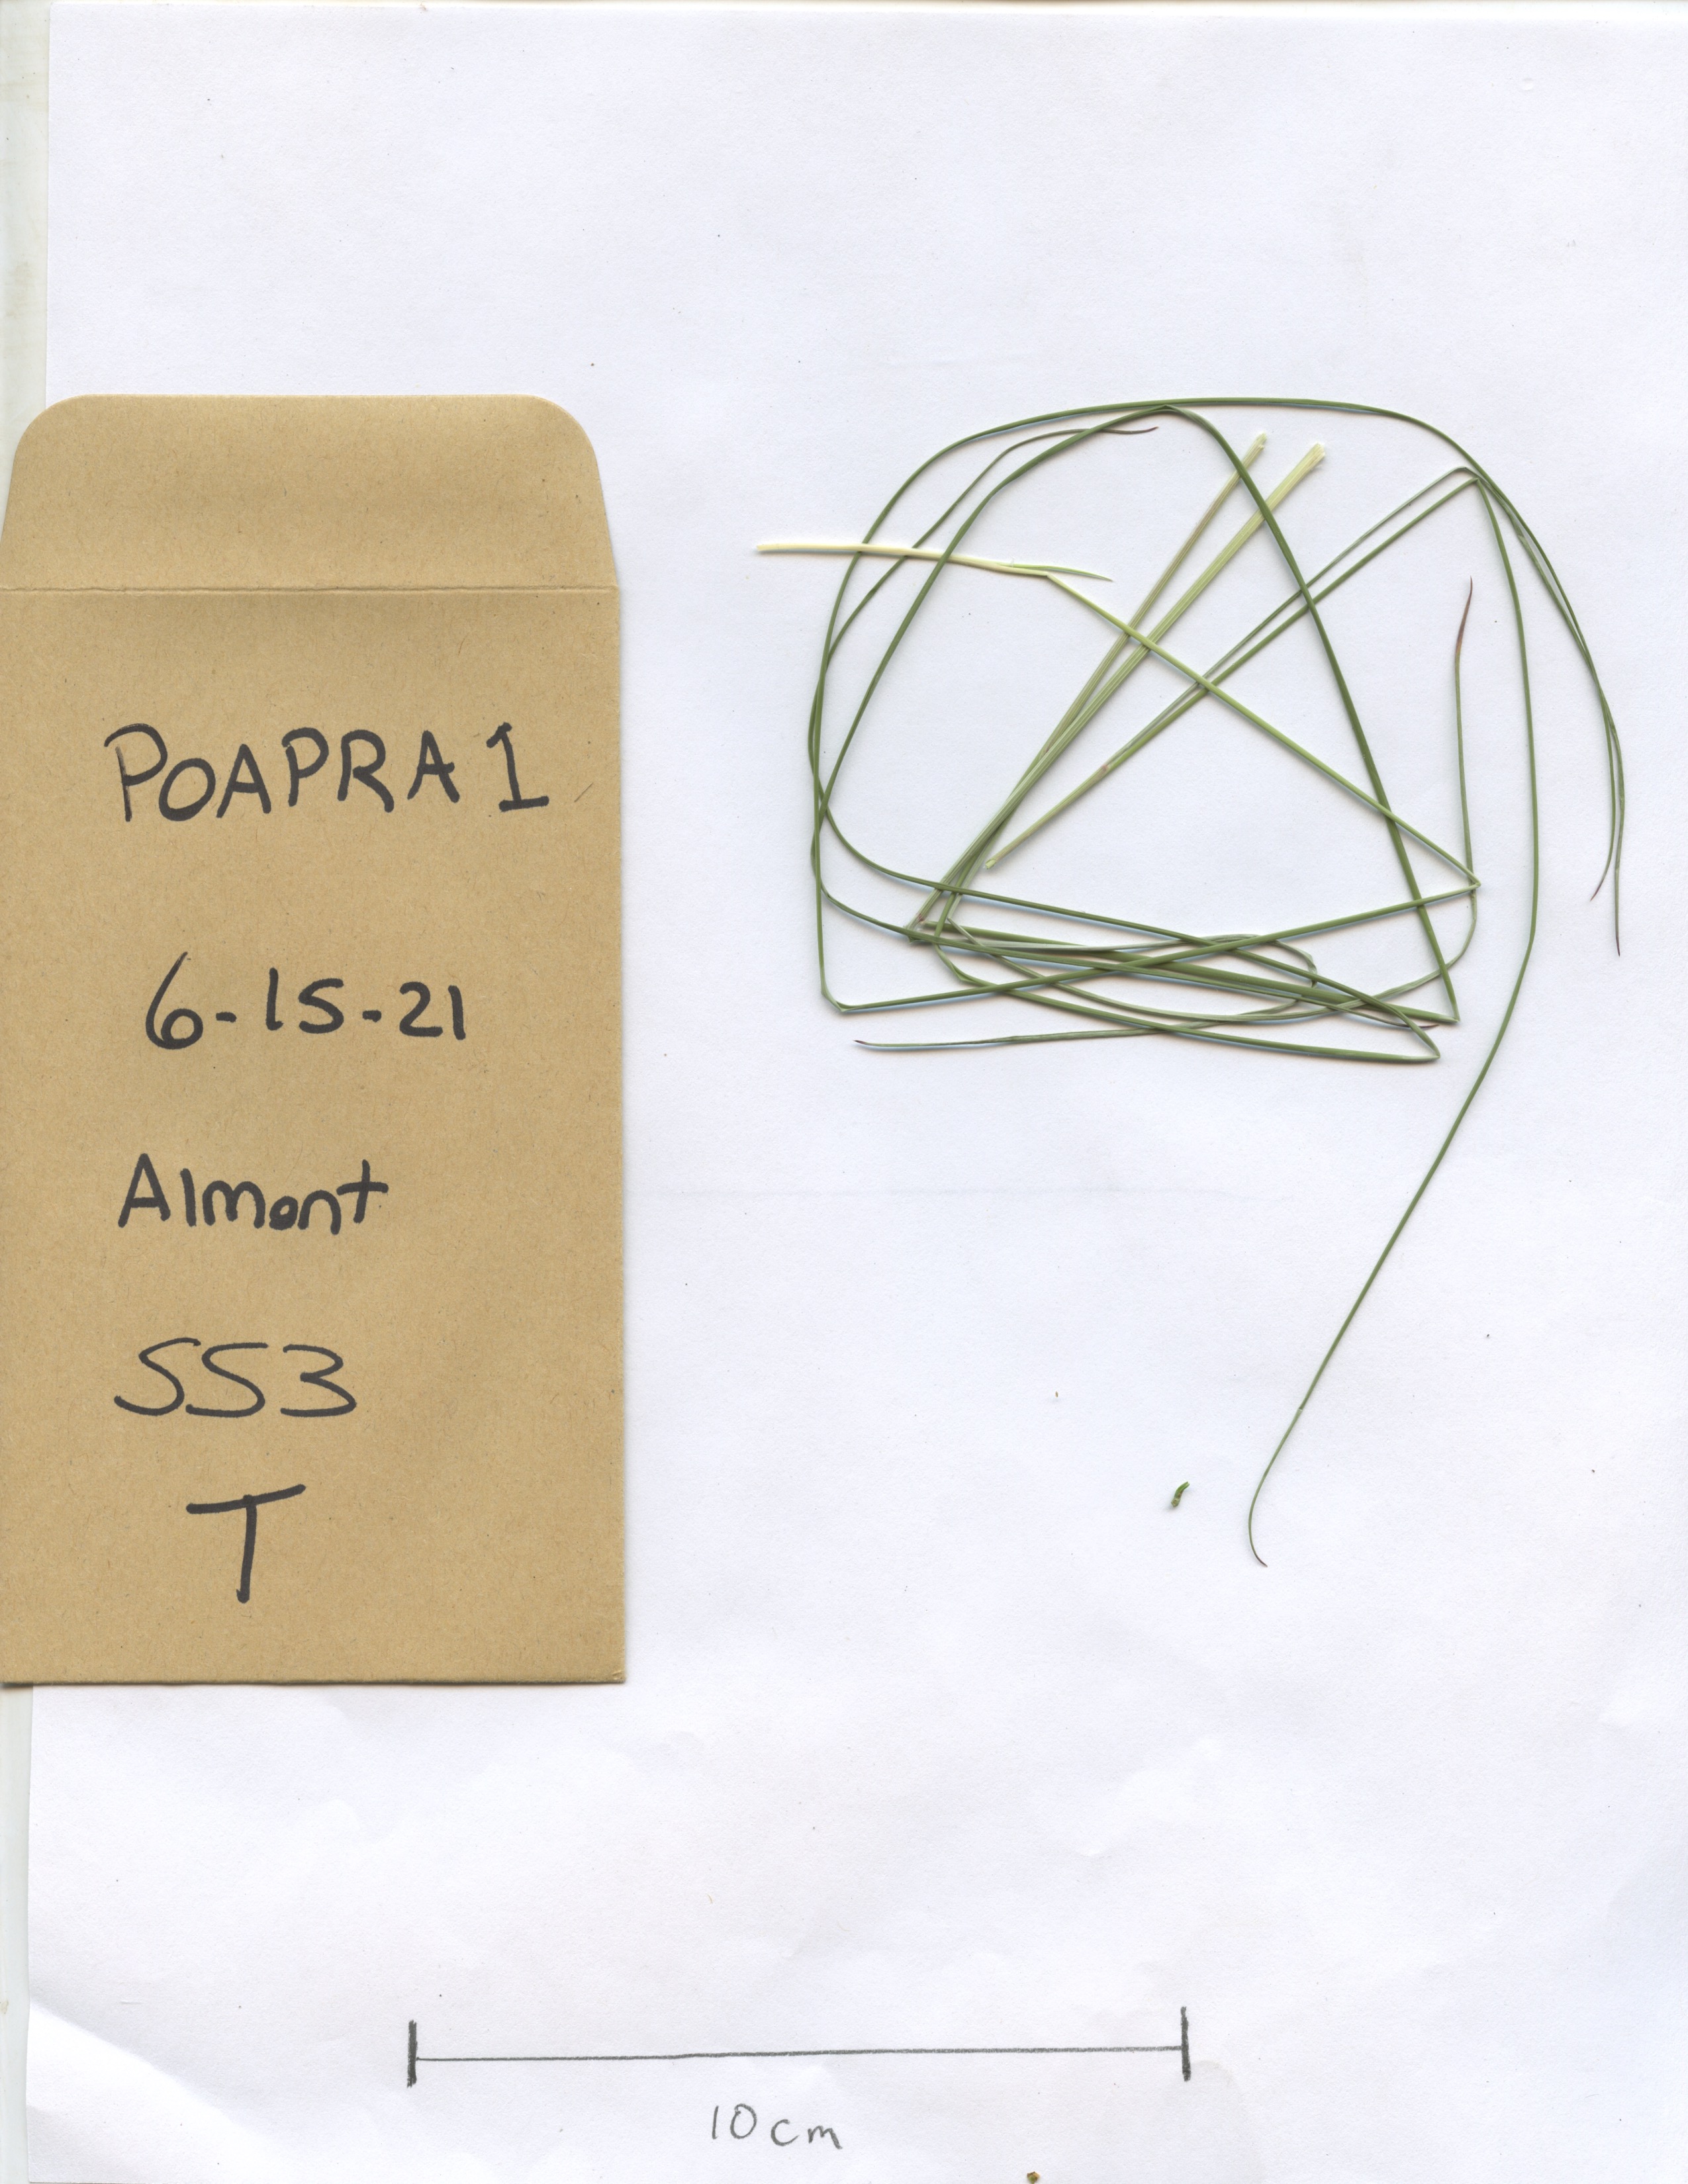 POAPRA 1
6-15-21
Almont
SS3
T
10cm